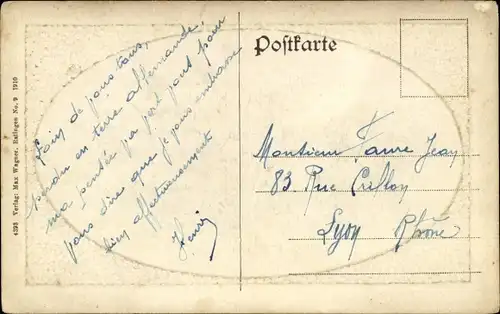 Loin de vous tous,
perdu en terre allemande,
ma pensée ne perd point pour
vous dire que je vous embrasse
bien affectueusement
Henri
Postkarte
Monsieur Faure Jean
83 Rue Crillon
Lyon Rhône
4393 Verlag: Max Wagner, Balingen No. 9. 1910